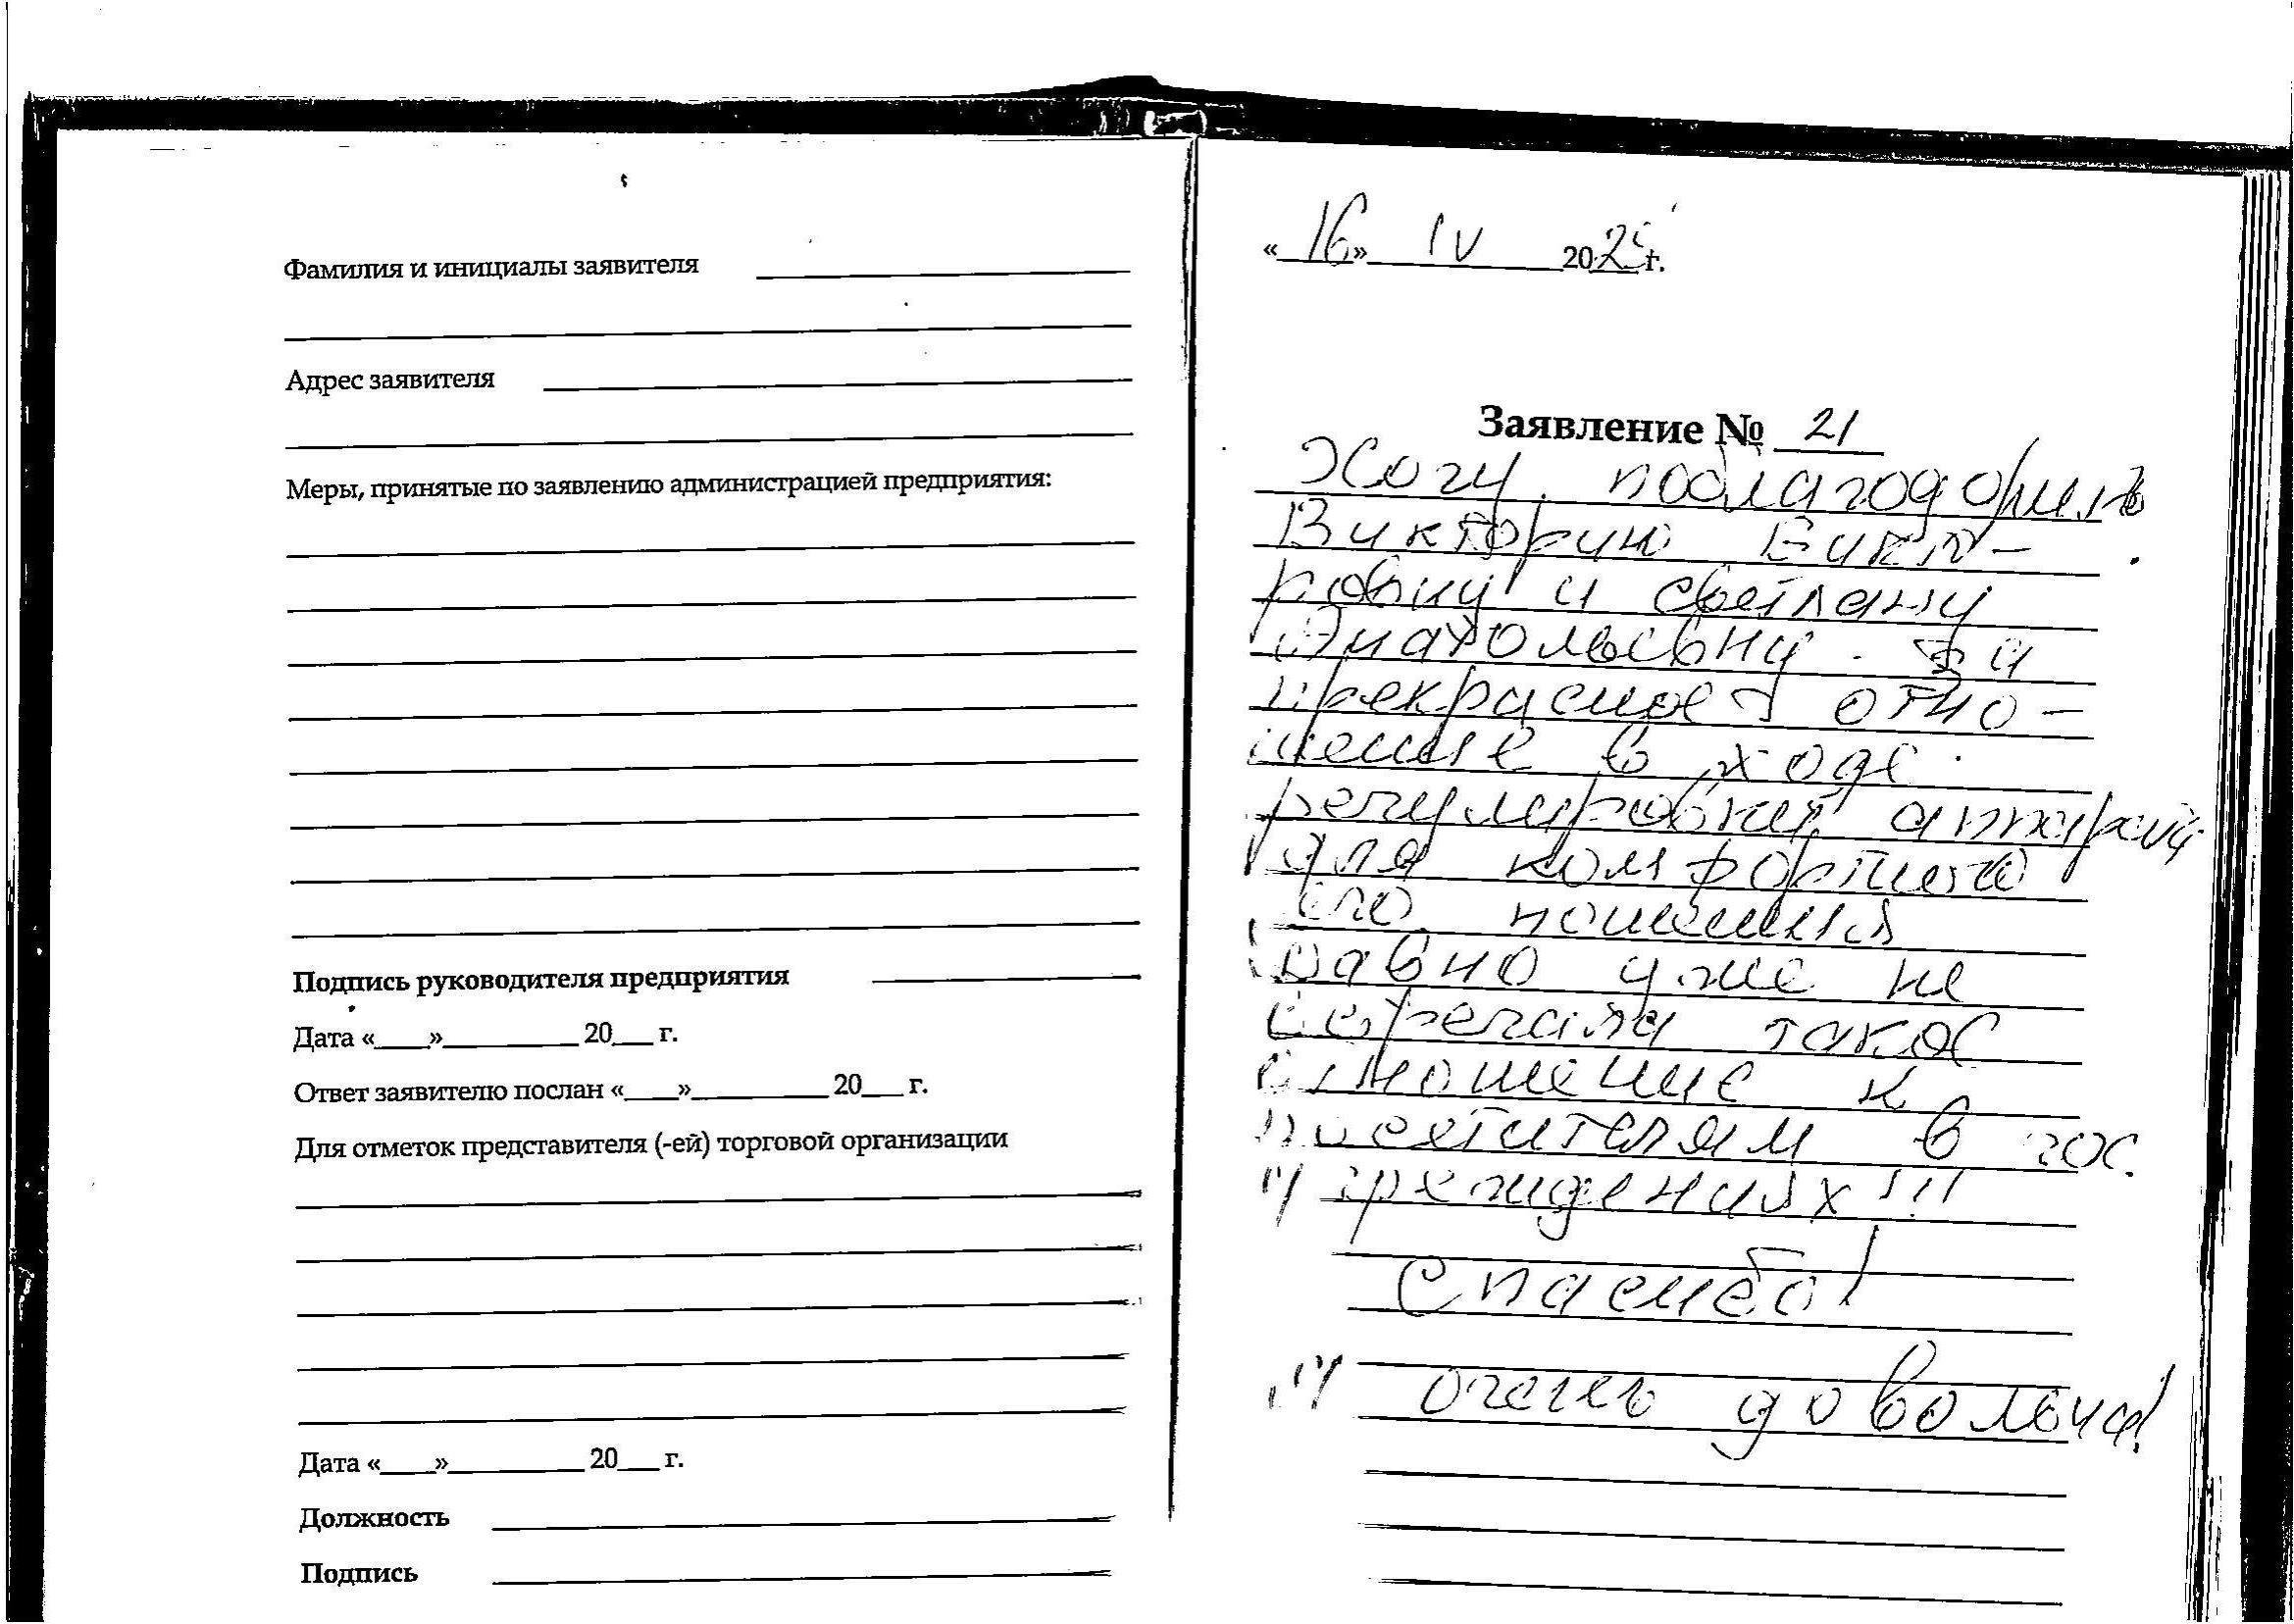 Фамилия и инициалы заявителя
Адрес заявителя
Меры, принятые по заявлению администрацией предприятия:
Подпись руководителя предприятия
Дата «____»__________ 20___ г.
Ответ заявителю послан «____»__________ 20___ г.
Для отметок представителя (-ей) торговой организации
Дата «____»__________ 20___ г.
Должность
Подпись
«16» IV 2025 г.
Заявление № 21
Хочу поблагодорить
Викторию Викто-
ровну и Светлану
Анатольевну за
прекрасное отно-
шение в ходе
регулировки аппарата
для комфортного
его ношения
Давно уже не
встречала такое
отношение к
посетителям в гос.
учреждениях!!!
Спасибо!
очень довольна!